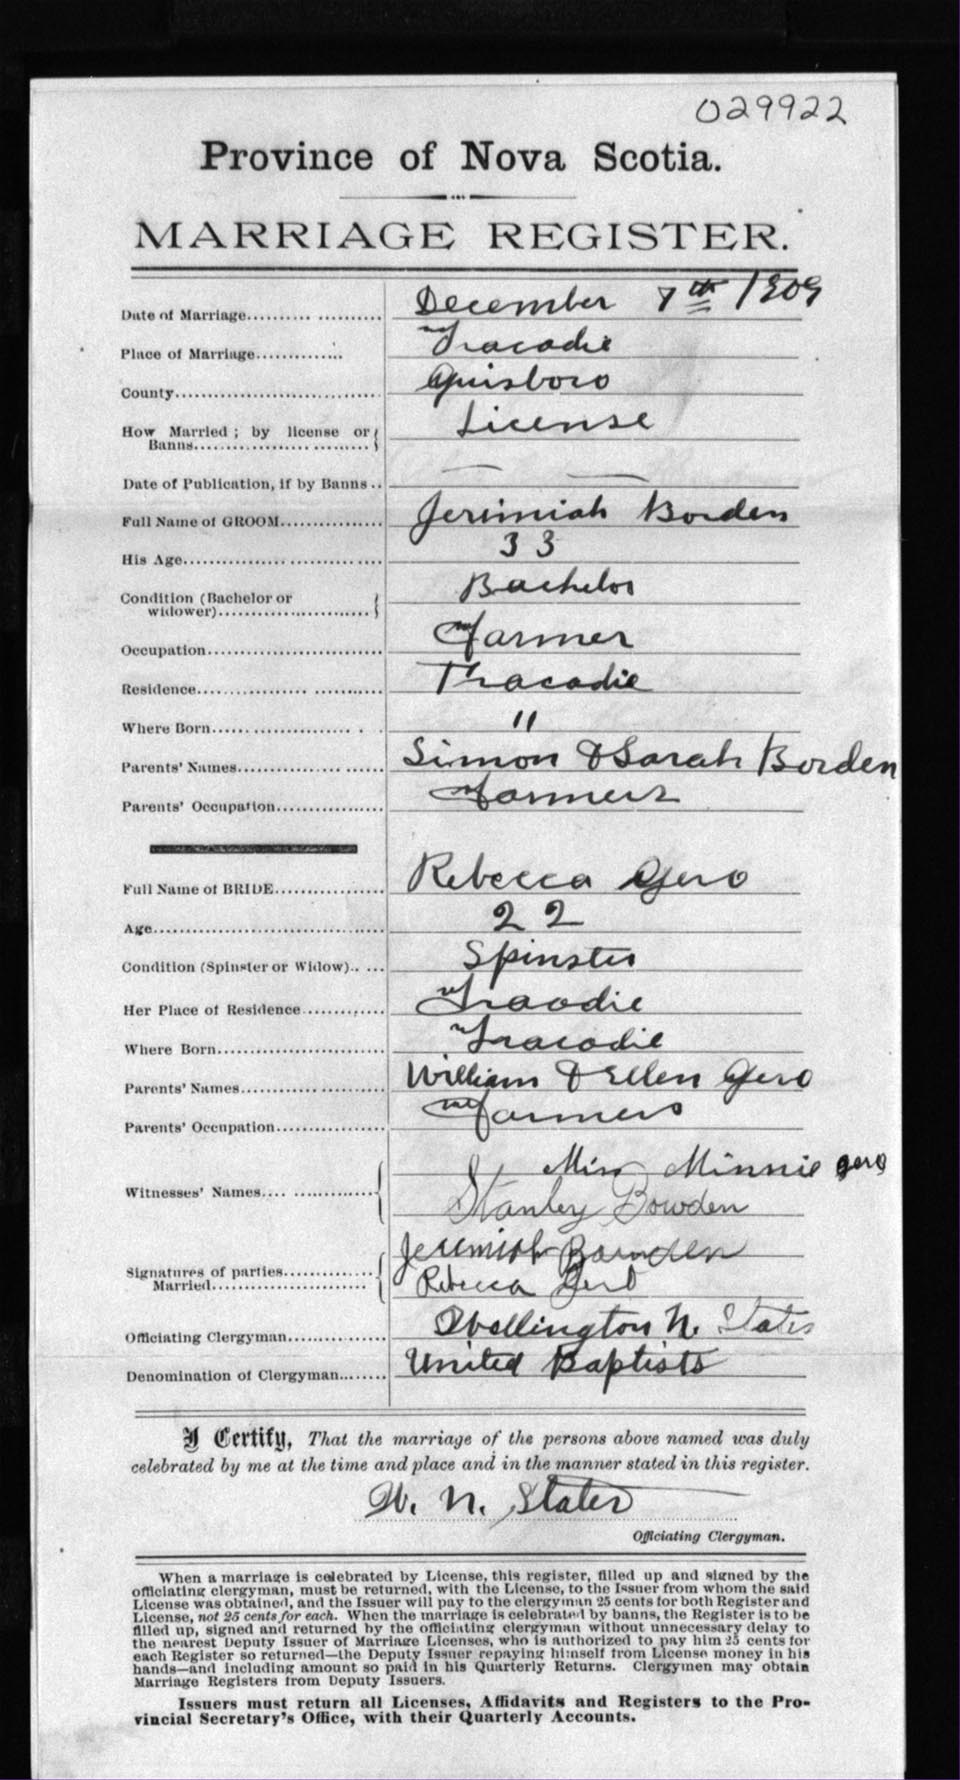 029922
Province of Nova Scotia.
MARRIAGE REGISTER.
Date of Marriage.......... .......... December 7th 1909
Place of Marriage.............. Tracadie
County............................... Guisboro
How Married ; by license or License
Banns...........................
Date of Publication, if by Banns.. — —
Full Name of GROOM................ Jerimiah Borden
His Age............................... 33
Condition (Bachelor or Bachelor
widower)........................
Occupation........................... Farmer
Residence............................ Tracadie
Where Born.......................... "
Parents' Names...................... Simon & Sarah Borden
Parents' Occupation................ Farmers
Full Name of BRIDE................. Rebecca Gero
Age.................................... 22
Condition (Spinster or Widow).. ... Spinster
Her Place of Residence............. Traodie
Where Born.......................... Tracadie
Parents' Names...................... William & Ellen Gero
Parents' Occupation................ Farmers
Miss Minnie Gero
Witnesses' Names.... .............. Stanley Bowden
Jeremiah
Signatures of parties.............. Rebecca Gero
Married.......................
Officiating Clergyman.............. Wellington N. States
Denomination of Clergyman........ United Baptists
I Certify, That the marriage of the persons above named was duly
celebrated by me at the time and place and in the manner stated in this register.
W. N. States
Officiating Clergyman.
When a marriage is celebrated by License, this register, filled up and signed by the
officiating clergyman, must be returned, with the License, to the Issuer from whom the said
License was obtained, and the Issuer will pay to the clergyman 25 cents for both Register and
License, not 25 cents for each. When the marriage is celebrated by banns, the Register is to be
filled up, signed and returned by the officiating clergyman without unnecessary delay to
the nearest Deputy Issuer of Marriage Licenses, who is authorized to pay him 25 cents for
each Register so returned—the Deputy Issuer repaying himself from License money in his
hands—and including amount so paid in his Quarterly Returns. Clergymen may obtain
Marriage Registers from Deputy Issuers.
Issuers must return all Licenses, Affidavits and Registers to the Pro-
vincial Secretary's Office, with their Quarterly Accounts.